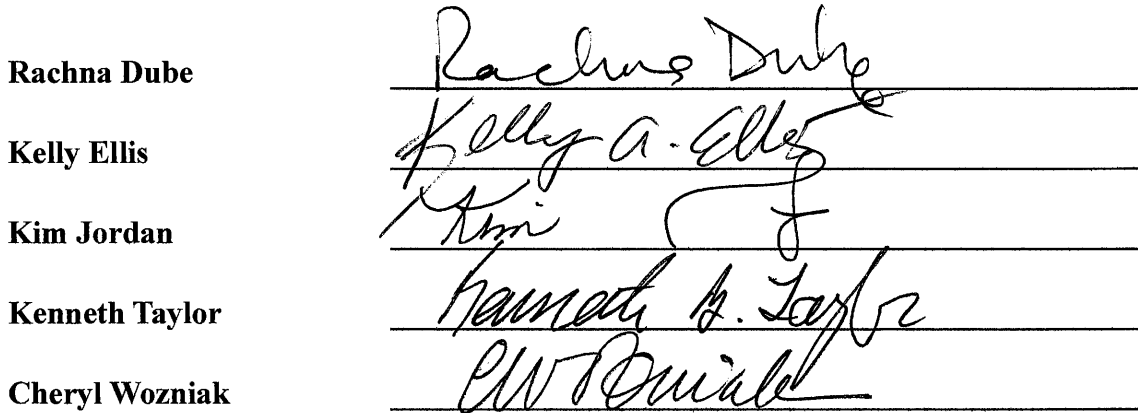 Rachna Dube Rachna Dube
Kelly Ellis Kelly A. Ellis
Kim Jordan Kim J
Kenneth Taylor Kenneth G. Taylor
Cheryl Wozniak CWozniak